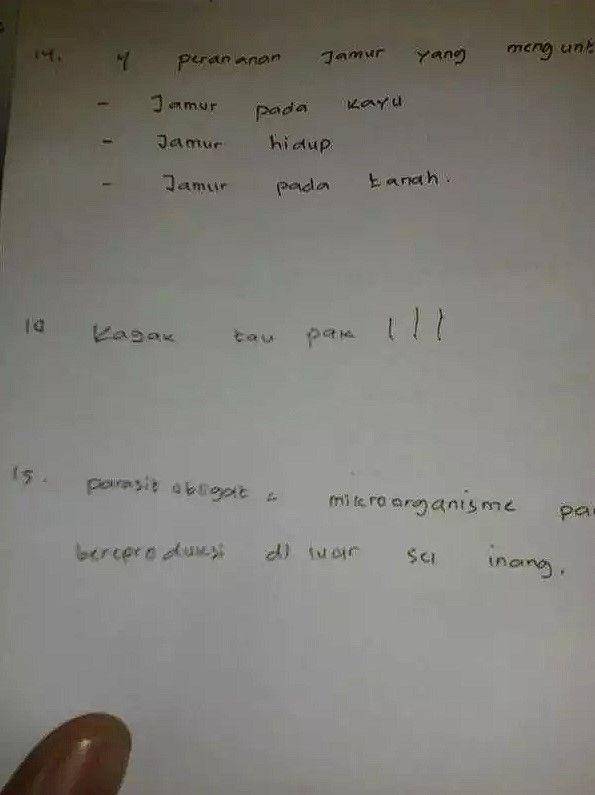 14. 4 perananan Jamur yang mengunt
- Jamur pada kayu
- Jamur hidup
- Jamur pada tanah.
10 Kagak tau pak !!!
15. parasit obligat : mikroorganisme pa
bereproduksi di luar sel inang.